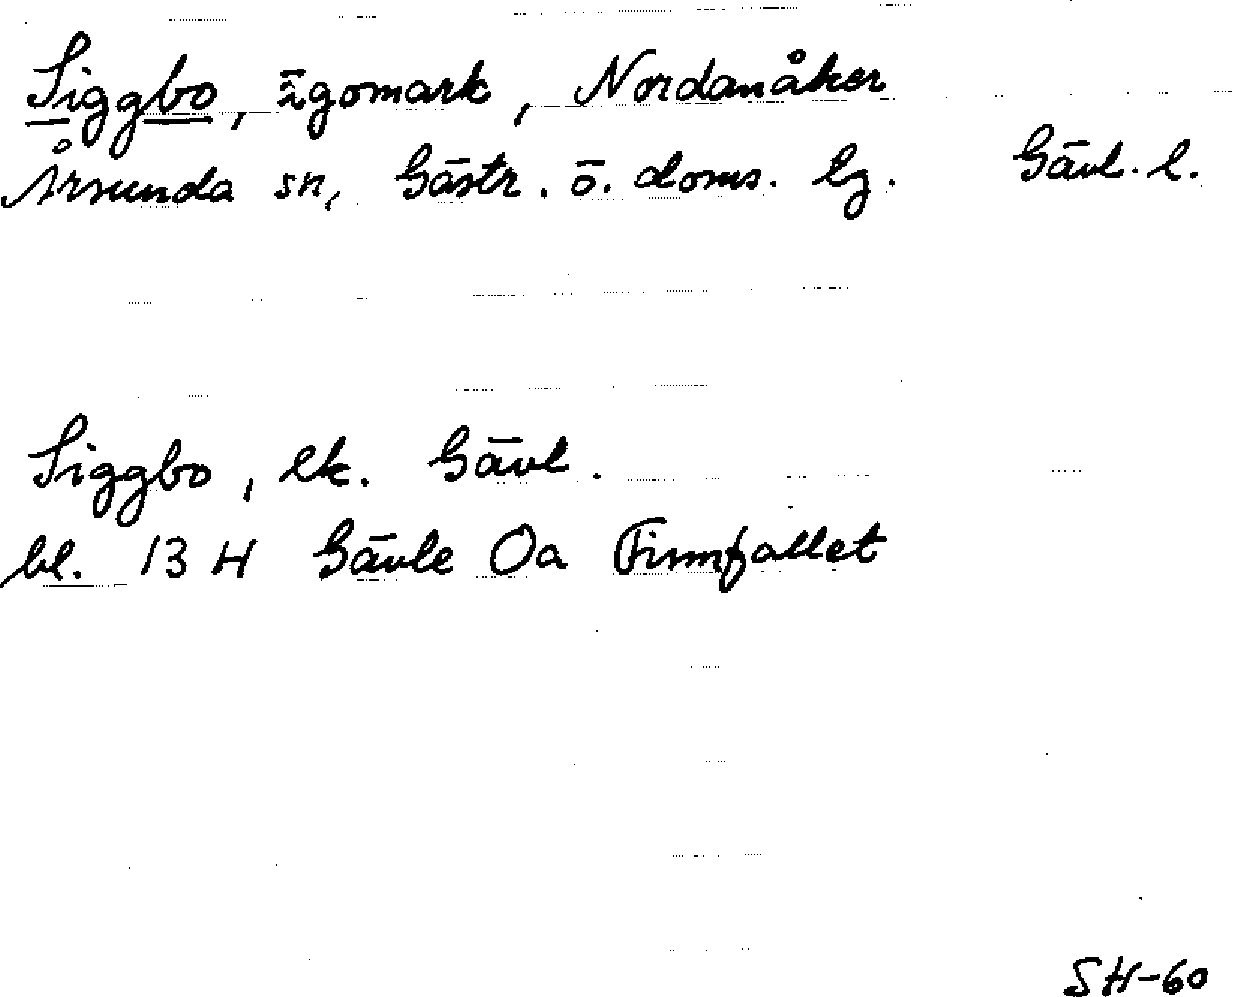 Siggbo, ägomark, Nordanåker
Årsunda sn, Gästr. ö. doms. lg. Gävl. l.
Siggbo, ek. Gävl.
bl. 13 H Gävle Oa Finnfallet
SH-60